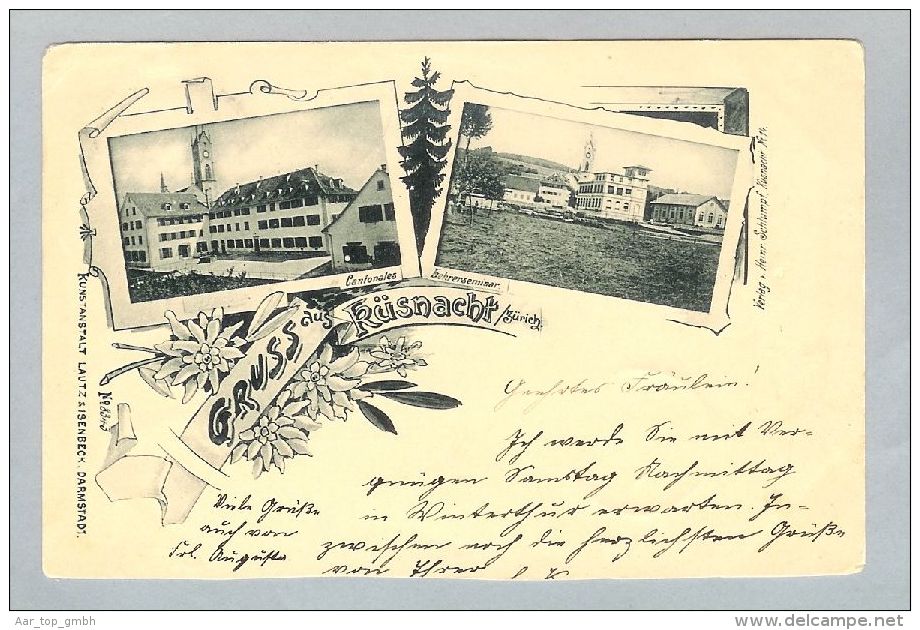 Cantonales
Lehrerseminar
GRUSS aus Küsnacht/Zürich.
KUNSTANSTALT LAUTZ & ISENBECK, DARMSTADT.
Verlag v. Heinr. Schlumpf, Küsnacht
Geehrtes Fräulein!
Ich werde Sie mit Ver-
gnügen Samstag Nachmittag
in Winterthur erwarten. In-
zwischen noch die herzlichsten Grüße
von Ihrer
Viele Grüße
auch von
Frl. Auguste
Aar_top_gmbh
www.delcampe.net